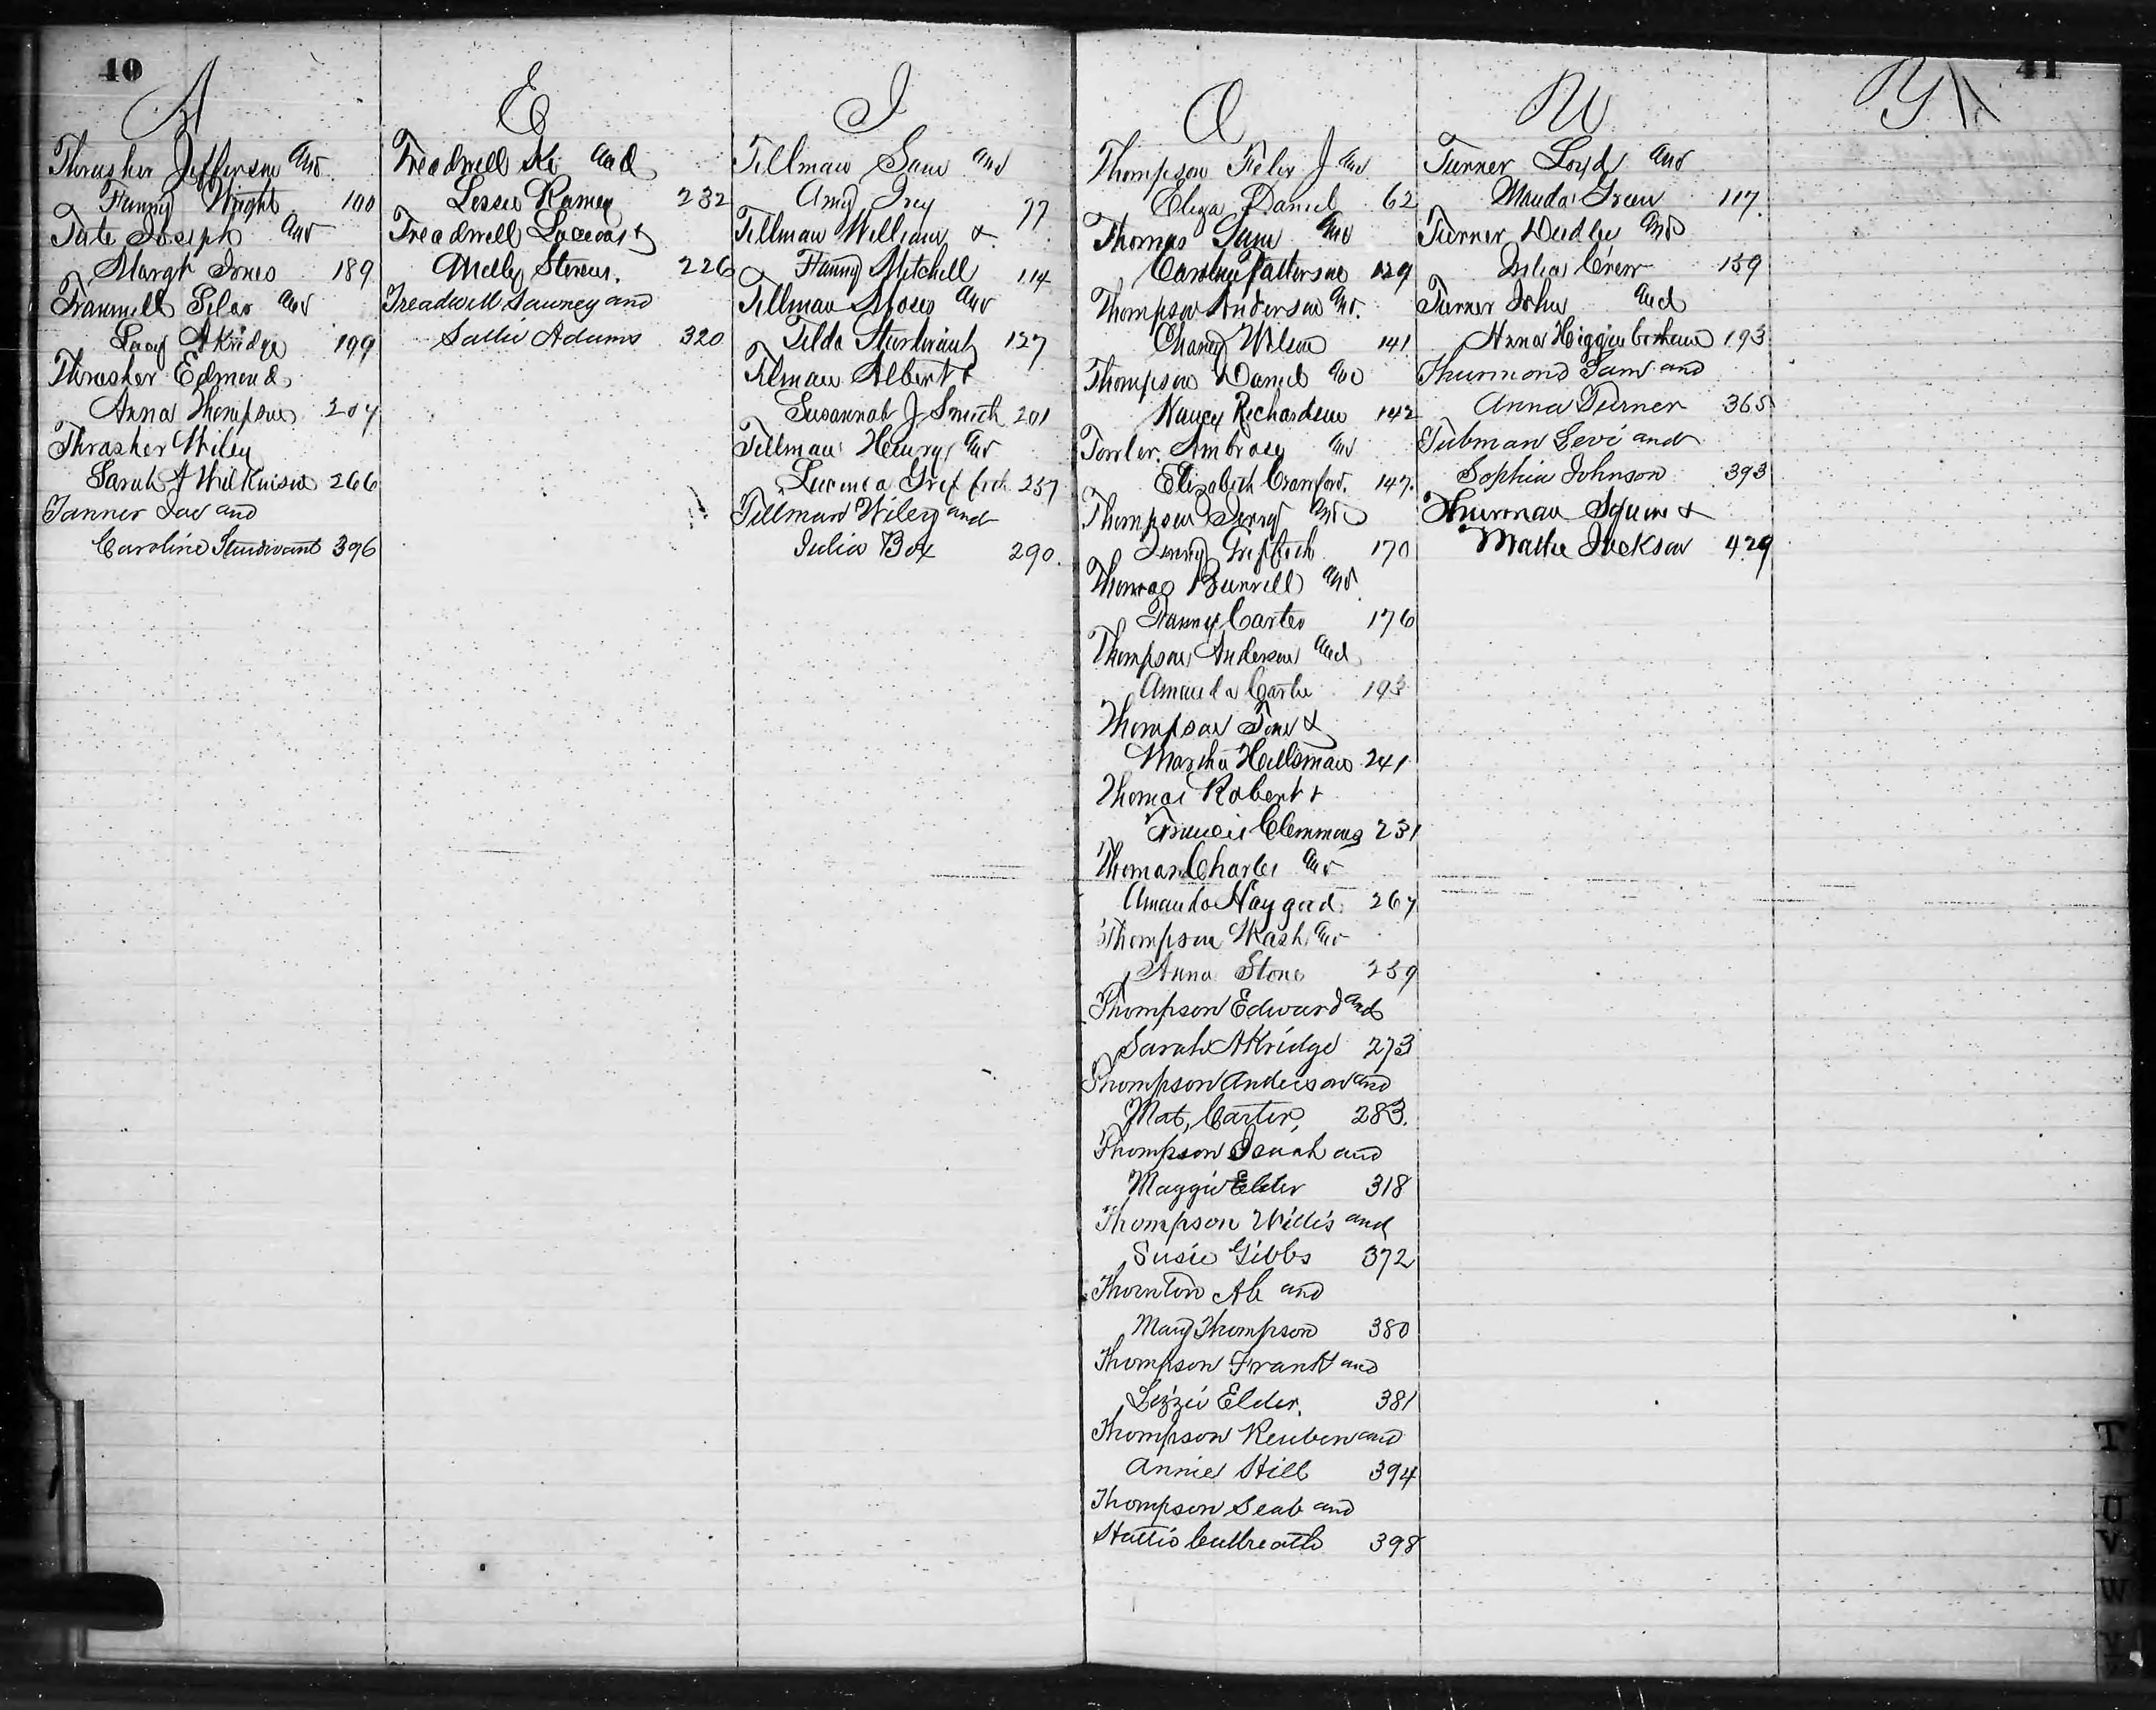 40
A
Thrasher Jefferson and
Fanny Wright 100
Tate Joseph and
Margt Jones 189
Trammell Silas and
Lucy Akridge 199
Thrasher Edmond
Anna Thompson 207
Thrasher Wiley
Sarah A Wilkinson 266
Tanner Joe and
Caroline Sturdivant 396
E
Treadwell and
Ramey 232
Treadwell &
Melly Stevens. 226
Treadwell Sawney and
Sallie Adams 320
I
Tillman Sam and
Amy 77
Tillman William &
Fanny Mitchell 114
Tillman Moses and
Tilda Sturdivant 127
Tilman Albert &
Susannah J Smith 201
Tillman Henry and
Lucinda Griffeth 257
Tillman Wiley and
Julia Box 290.
41
O
Thompson Felix J and
Eliza Daniel 62
Thomas and
Caroline Patterson 129
Thompson Anderson and
Chaney Wilson 141
Thompson Daniel and
Nancy Richardson 142
Towler. Ambrose and
Elizabeth Crawford. 147.
Thompson and
Griffeth 170
Thomas Burrell and
Fanny Carter 176
Thompson Anderson and
Amanda Carter 193
Thompson Tom &
Martha Hallsman 241
Thomas Robert &
Francis Clemmons 231
Thomas Charles and
Amanda Haygood 267
Thompson Wash and
Anna Stone 259
Thompson Edward and
Sarah Akridge 273
Thompson Anderson and
Mat, Carter, 283.
Thompson Isaiah and
Maggie Elder 318
Thompson Willis and
Susie Gibbs 372
Thornton Ab and
Mary Thompson 380
Thompson Frank and
Lizzie Elder. 381
Thompson Reuben and
Annie Hill 394
Thompson Seab and
Hattie Culbreath 398
U
Turner Loyd and
Manda Green 117.
Turner Dudley and
Julia Crew 159
Turner John and
Anna Higginbotham 193
Thurmond Sam and
Anna Turner 365
Tubman Levi and
Sophia Johnson 393
Thurman Squire &
Mattie Jackson 429
Y
T
U
V
W